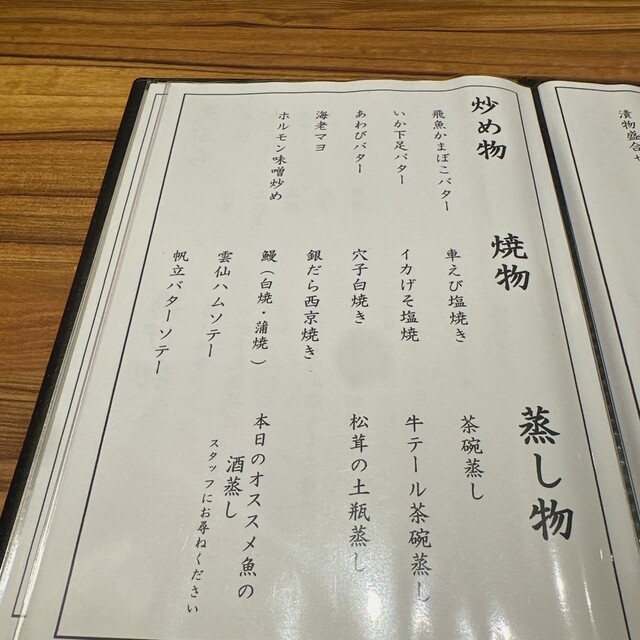 炒め物
飛魚かまぼこバター
いか下足バター
あわびバター
海老マヨ
ホルモン味噌炒め
焼物
車えび塩焼き
イカげそ塩焼
穴子白焼き
銀だら西京焼き
鰻（白焼・蒲焼）
雲仙ハムソテー
帆立バターソテー
蒸し物
茶碗蒸し
牛テール茶碗蒸し
松茸の土瓶蒸し
本日のオススメ魚の
酒蒸し
スタッフにお尋ねください
漬物盛合せ